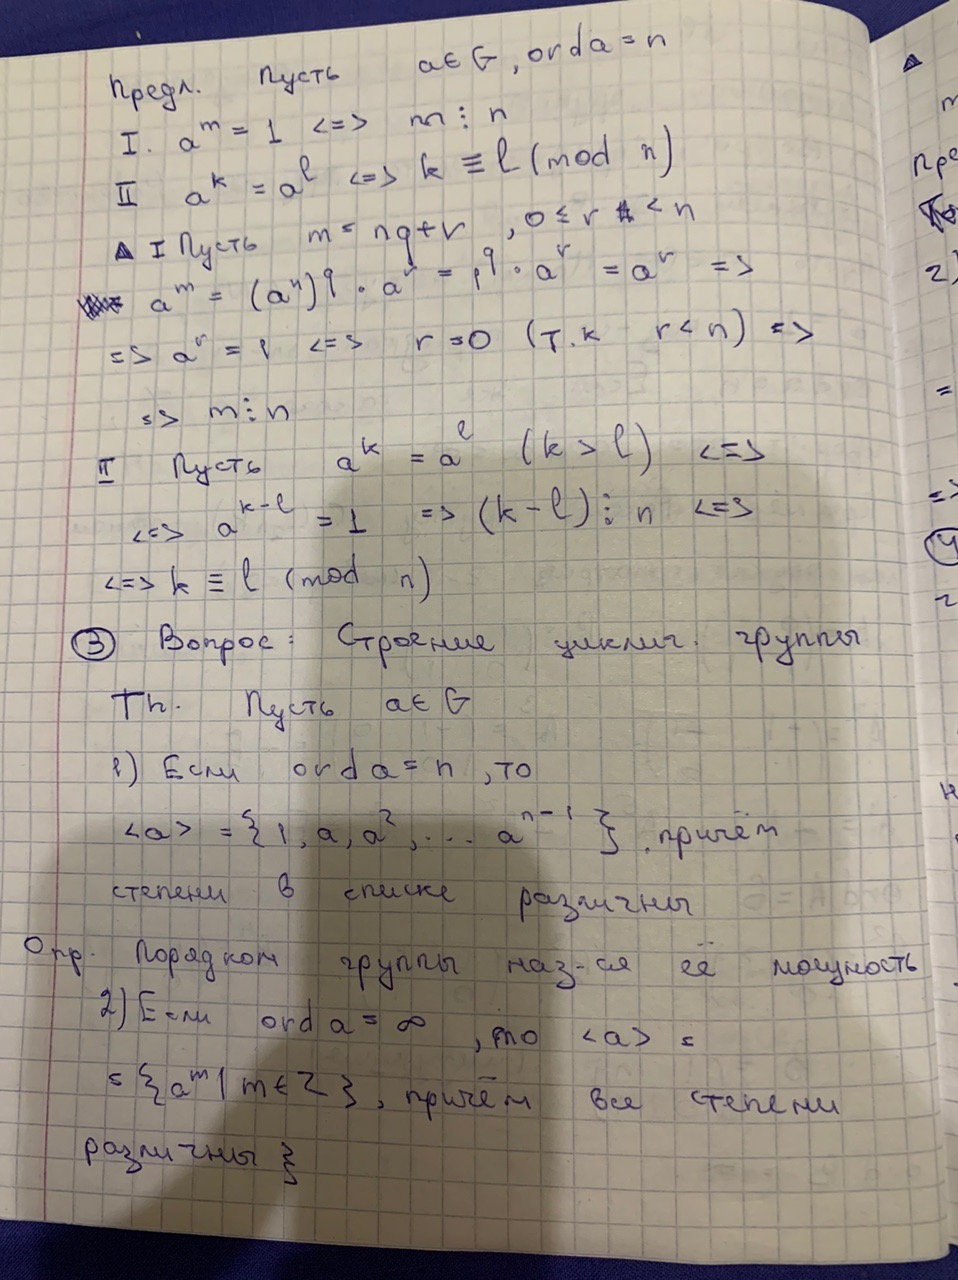 Предл. Пусть a∈G, ord a = n
I. a^m = 1 <=> m ⋮ n
II a^k = a^l <=> k ≡ l (mod n)
Δ I Пусть m = nq+r, 0 ≤ r < n
a^m = (a^n)^q · a^r = 1^q · a^r = a^r =>
=> a^r = 1 <=> r=0 (т.к r<n) =>
=> m ⋮ n
II Пусть a^k = a^l (k > l) <=>
<=> a^{k-l} = 1 => (k-l) ⋮ n <=>
<=> k ≡ l (mod n)
③ Вопрос: Строение циклич. группы
Th. Пусть a∈G
1) Если ord a = n, то
<a> = {1, a, a^2, ... a^{n-1}}, причём
степени в списке различны
Опр. Порядком группы наз-ся её мощность
2) Если ord a = ∞, то <a> =
= {a^m | m∈Z}, причём все степени
различны }
Δ
m
Пре
2)
=
=>
④